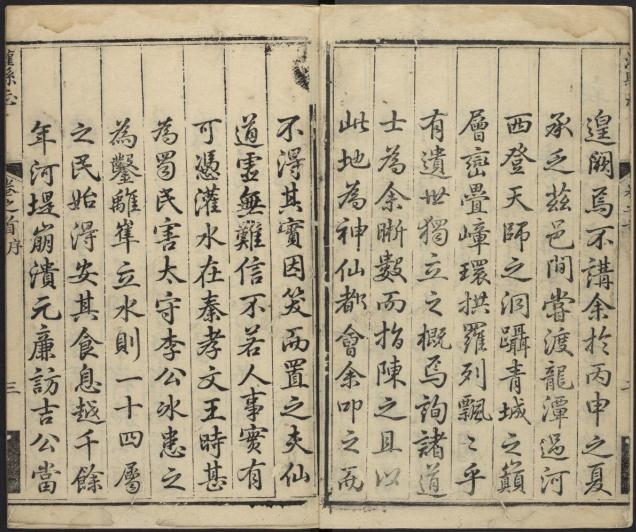 遑闕焉不講余於丙申之夏
承乏茲邑間嘗渡龍潭過河
西登天師之洞躡青城之巔
層巒疊嶂環拱羅列飄〻乎
有遺世獨立之概焉詢諸道
士為余晰數而指陳之且以
此地為神仙都會余叩之而
不得其實因笑而置之夫仙
道虛無難信不若人事實有
可憑灌水在秦孝文王時甚
為蜀民害太守李公冰患之
為鑿離𠌥立水則一十四屬
之民始得安其食息越千餘
年河堤崩潰元廉訪吉公當
灌縣志
卷之首序
三